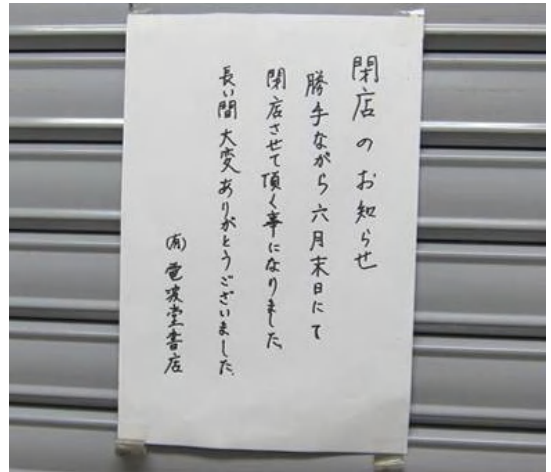 閉店のお知らせ
勝手ながら六月末日にて
閉店させて頂く事になりました。
長い間大変ありがとうございました。
(有)電波堂書店